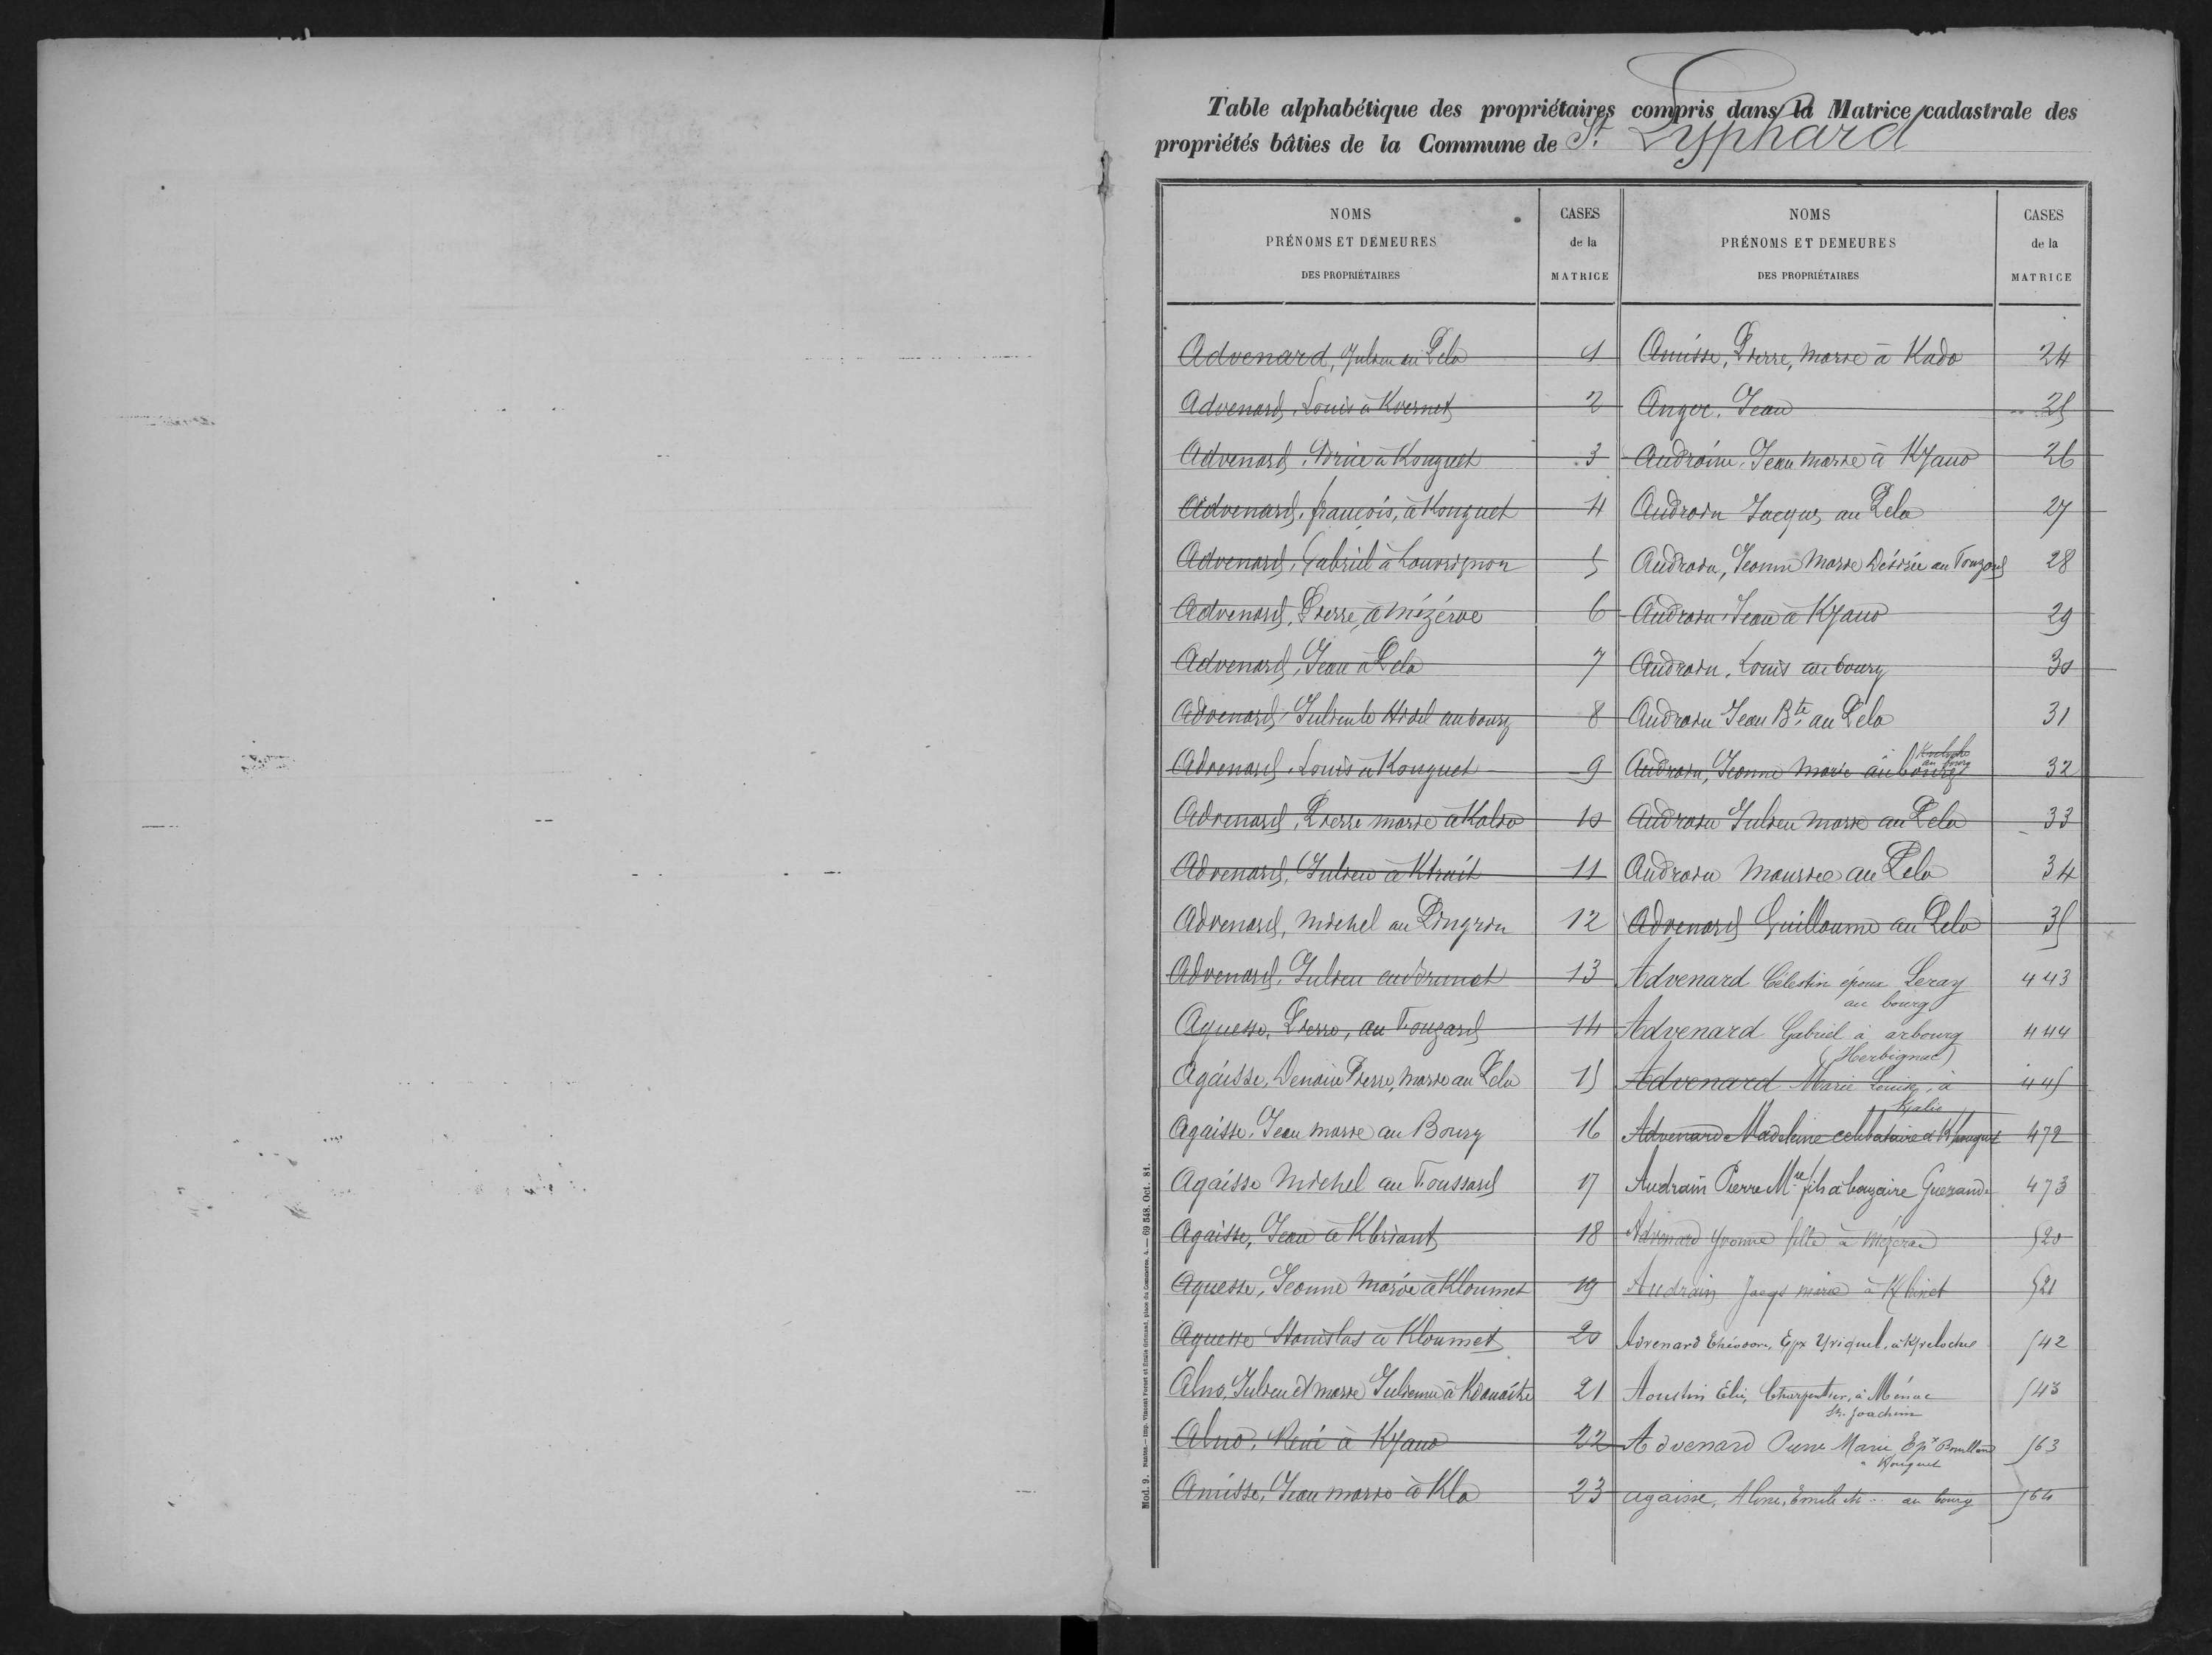 Table alphabétique des propriétaires compris dans la Matrice cadastrale des
propriétés bâties de la Commune de St. Lyphard
NOMS
PRÉNOMS ET DEMEURES
DES PROPRIÉTAIRES
CASES
de la
MATRICE
Advenard, Julien au Pelo 1
Advenard, Louis à Kvernet 2
Advenard, à Kouguet 3
Advenard, françois, à Kouguet 4
Advenard, Gabriel à Louvrignon 5
Advenard, Pierre, à mézérve 6
Advenard, Jean à Pelo 7
Advenard, Julien le au bourg 8
Advenard, Louis à Kouguet 9
Advenard, Pierre marie à Kolvo 10
Advenard, Julien à 11
Advenard, michel au Pingrin 12
Advenard, Julien au brunet 13
Aguesse, Pierre, au Fougard 14
Agaisse, Denoine Pierre, marie au Pelo 15
Agaisse, Jean marie au Bourg 16
Agaisse michel au Foussard 17
Agaisse, Jean à Kbriant 18
Aguesse, Jeanne Marie à Kloumet 19
Aguesse Stanislas à Kloumet 20
Alno, Julien et marie Julienne à 21
Alno, René à Kjano 22
Amisse, Jean marie à Klo 23
NOMS
PRÉNOMS ET DEMEURES
DES PROPRIÉTAIRES
CASES
de la
MATRICE
Amisse, Pierre, marie à Kado 24
Anger, Jean 25
Audrain, Jean marie à Kjano 26
Audrain Jacques au Pelo 27
Audrain, Jeanne Marie Désirée au Fougard 28
Audrain, Jean à Kjano 29
Audrain, Louis au bourg 30
Audrain Jean Bte au Pelo 31
au bourg
Audrain, Jeanne Marie au bourg 32
Audrain Julien Marie au Pelo 33
Audrain Maurice au Pelo 34
Advenard Guillaume au Pelo 35
Advenard Célestin époux Leray 443
au bourg
Advenard Gabriel à arbourg 444
(Herbignac)
Advenard Marie Louise, à 445
Kjalie
Advenard Madeleine celibataire à Khouguet 472
Audrain Pierre Mie fils à bauzaire Guerande 473
Advenard Yvonne fille à Mézerac 520
Audrain Jacqs marie à Kbinet 521
Advenard Théodore, Epx Yviquel, à Kreloche 542
Aoustin Elie, Charpentier, à Ménac 543
St. Joachim
Advenard Pierre Marie, Epx 563
à Kouguet
agaisse, Aline, Emilie au bourg 564
Mod. 9. Nantes.— Imp. Vincent Forest et Emile Grimaud, place du Commerce, 4. — 69 548. Oct. 81.